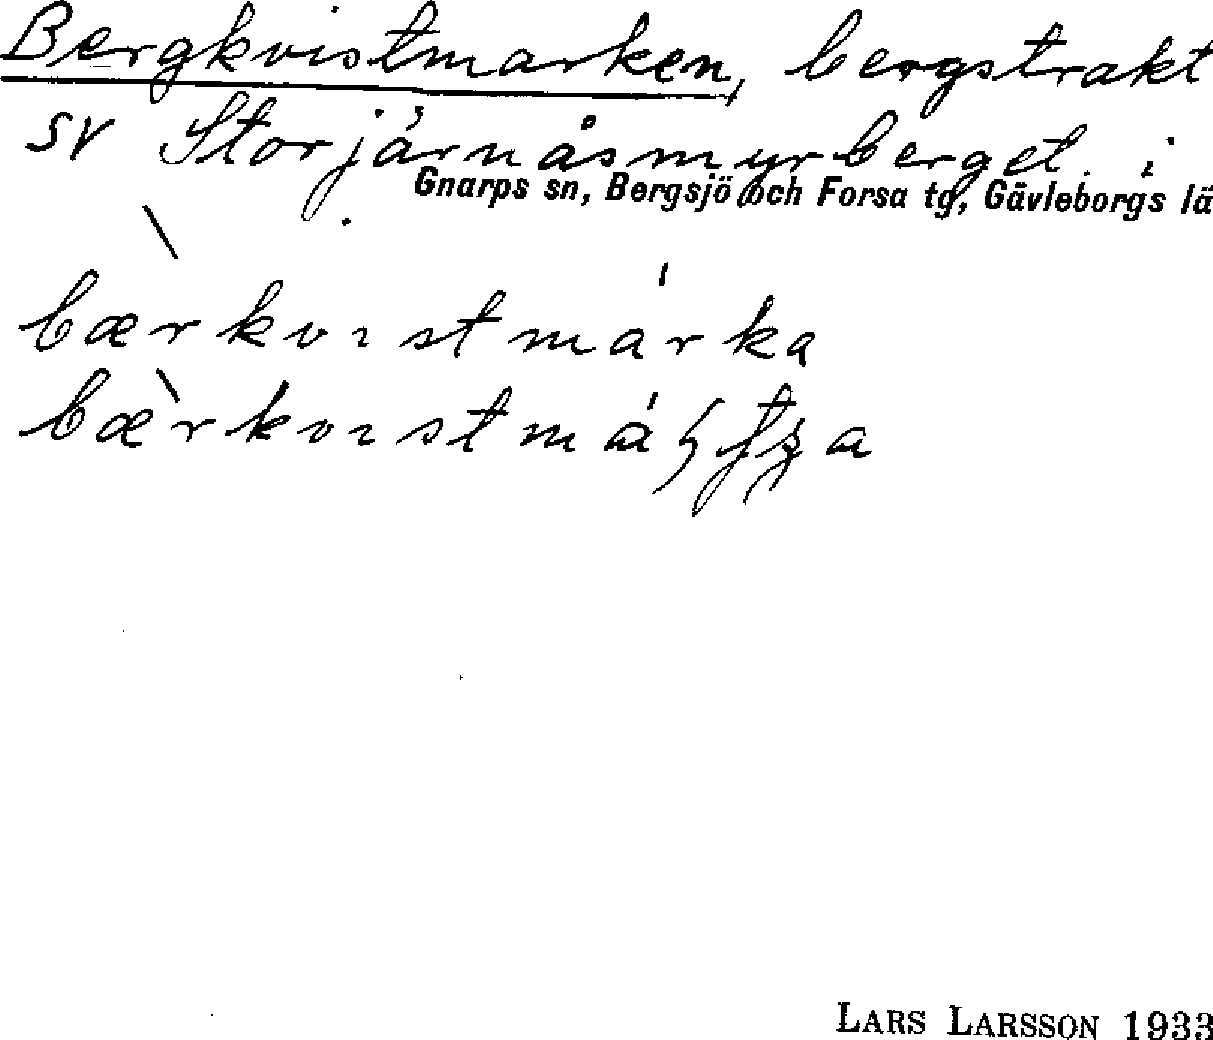 Bergkvistmarken, bergstrakt
SV Storjärnåsmyrberget i
Gnarps sn, Bergsjö och Forsa tg, Gävleborgs lä
bærkvıstmárka
LARS LARSSON 1933